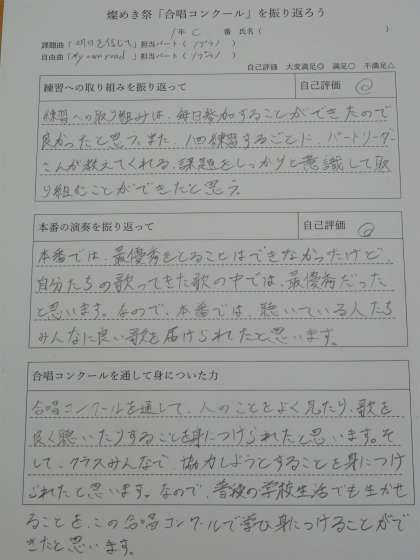 燦めき祭「合唱コンクール」を振り返ろう
1年 C 番 氏名( )
課題曲「明日を信じて」担当パート(ソプラノ)
自由曲「My own road」担当パート(ソプラノ)
自己評価 大変満足◎ 満足○ 不満足△
練習への取り組みを振り返って 自己評価 ◎
練習への取り組みは、毎日参加することができたので
良かったと思う。また、1回練習するごとに、パートリーダー
さんが教えてくれる、課題をしっかりと意識して取
り組むことができたと思う。
本番の演奏を振り返って 自己評価 ◎
本番では、最優秀をとることはできなかったけど、
自分たちの歌ってきた歌の中では、最優秀だった
と思います。なので、本番では、聴いている人たち
みんなに良い歌を届けられたと思います。
合唱コンクールを通して身についた力
合唱コンクールを通して、人のことをよく見たり、歌を
良く聴いたりすることを身につけられたと思います。そ
して、クラスみんなで協力しようとすることを身につけ
られたと思います。なので、普段の学校生活でも生かせ
ることを、この合唱コンクールで学び身につけることがで
きたと思います。